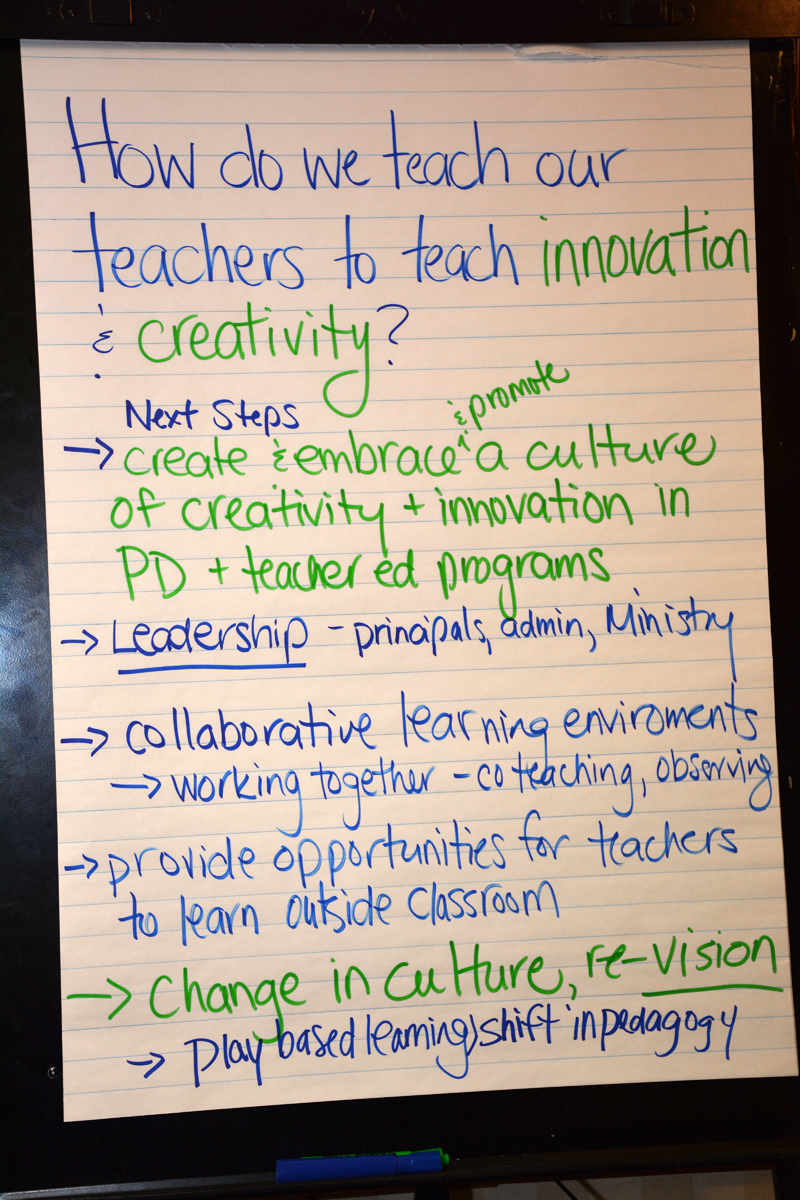 How do we teach our
teachers to teach innovation
& creativity?
Next Steps
& promote
→ create & embrace ^ a culture
of creativity + innovation in
PD + teacher ed programs
→ Leadership - principals, admin, Ministry
→ collaborative learning enviroments
→ working together - co teaching, observing
→ provide opportunities for teachers
to learn outside classroom
→ Change in culture, re-vision
→ play based learning, shift in pedagogy